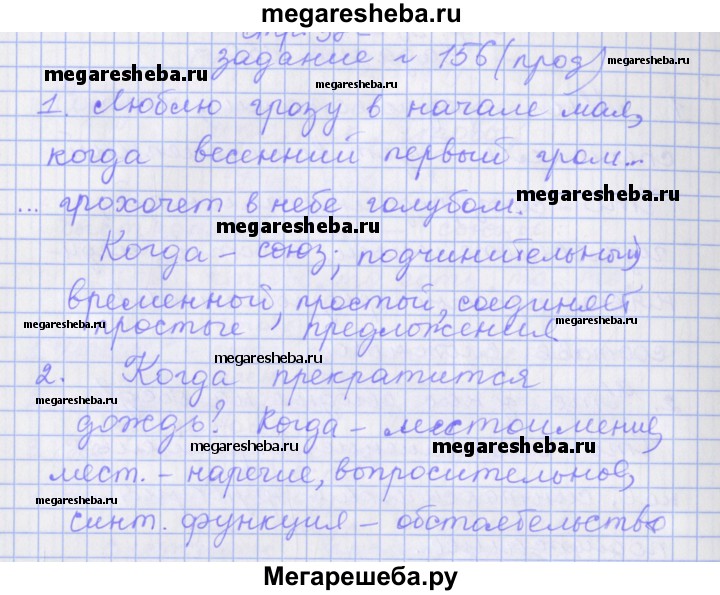 megaresheba.ru
задание № 156 (прод)
megaresheba.ru
megaresheba.ru
1. Люблю грозу в начале мая,
megaresheba.ru
когда весенний первый гром...
megaresheba.ru
... грохочет в небе голубом.
megaresheba.ru
Когда – союз; подчинительный,
временный, простой, соединяет
megaresheba.ru
простые предложения.
megaresheba.ru
megaresheba.ru
2. Когда прекратится
megaresheba.ru
дождь? Когда – местоимение,
megaresheba.ru
megaresheba.ru
мест. – наречие, вопросительное,
megaresheba.ru
синт. функция – обстоятельство
Мегарешеба.ру